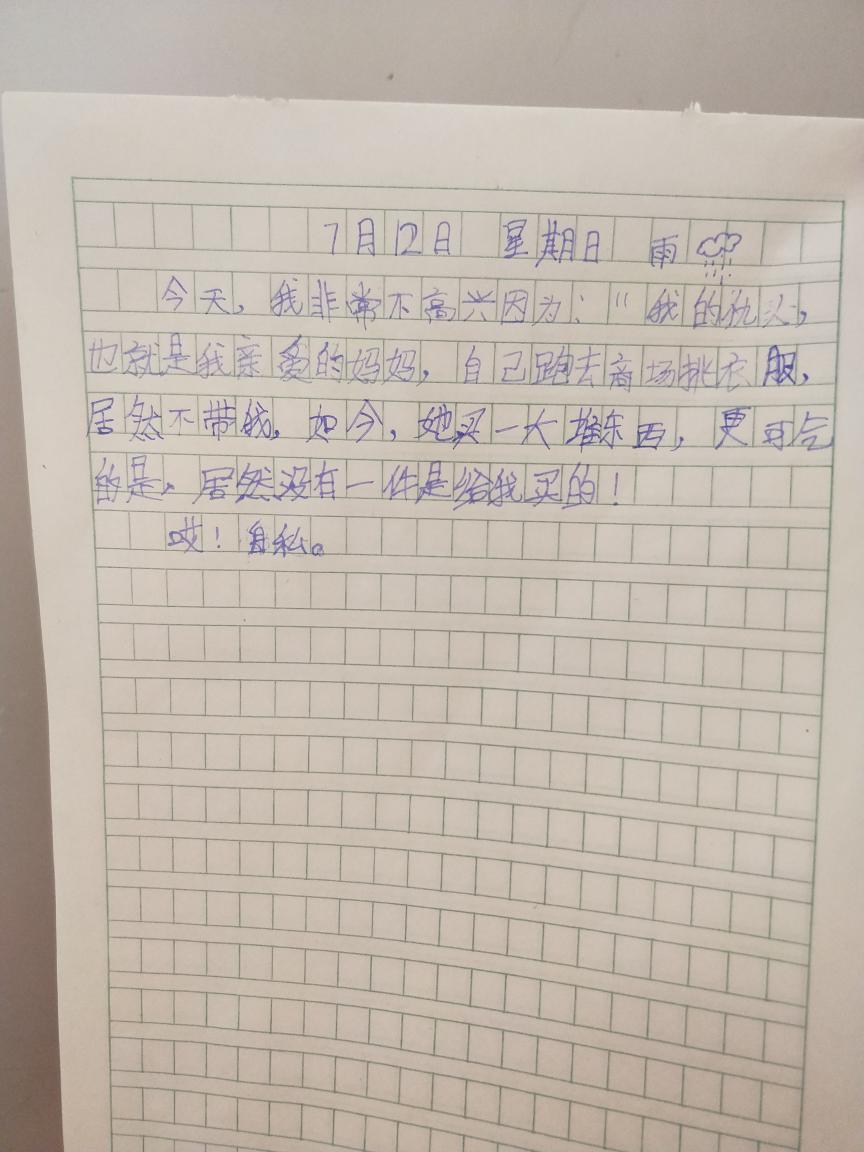 7月12日 星期日 雨
今天，我非常不高兴因为："我的仇人，
也就是我亲爱的妈妈，自己跑去商场挑衣服，
居然不带我。如今，她买一大堆东西，更可气
的是，居然没有一件是给我买的！
哎！自私。